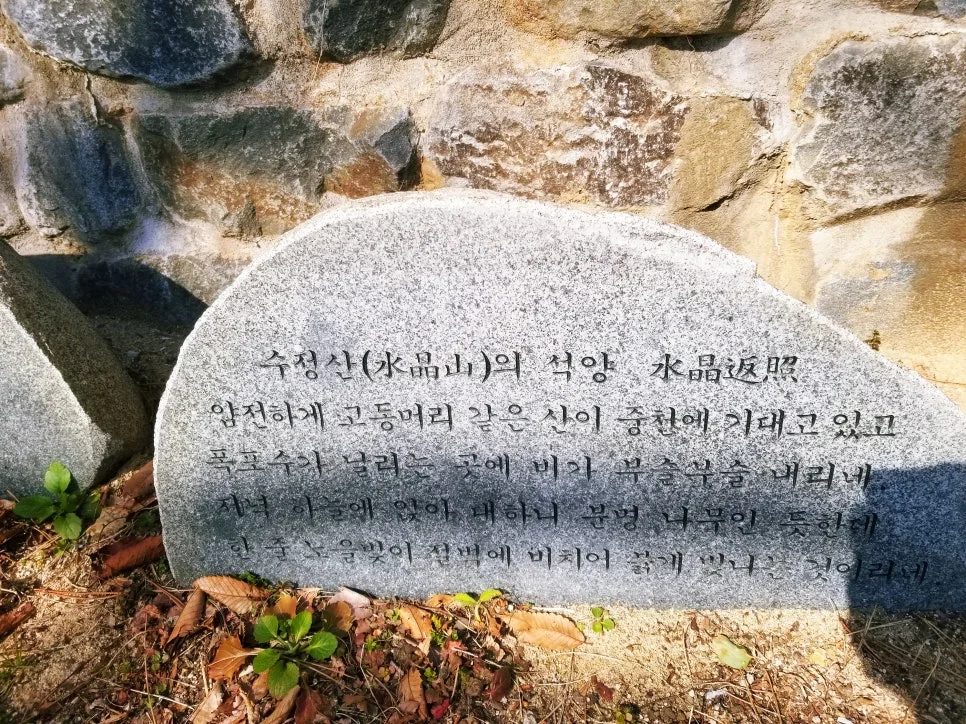 수정산(水晶山)의 석양 水晶返照
얌전하게 고동머리 같은 산이 중천에 기대고 있고
폭포수가 날리는 곳에 비가 부슬부슬 내리네.
저녁 하늘에 앉아 대하니 분명 나무인 듯한데
한 줄 노을빛이 절벽에 비치어 붉게 빛나는 것이라네.